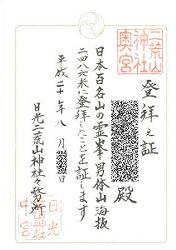 二荒山
神社
奥宮
登拝之証
殿
日本百名山の霊峯男体山海抜
二四八六米に登拝したことを証します
平成二十年八月 日
日光二荒山神社々務所
日光
中宮